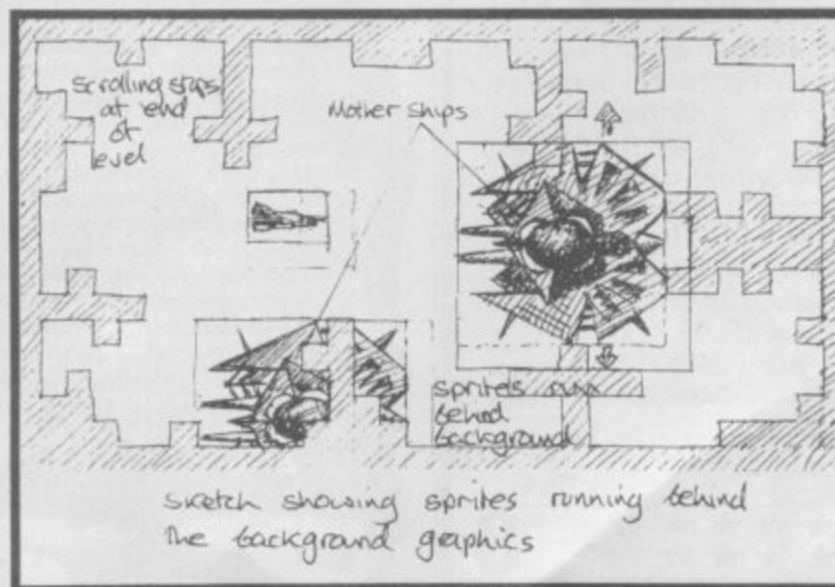 Scrolling stops
at end
of
level
Mother ships
sprites run
behind
background
Sketch showing sprites running behind
the background graphics